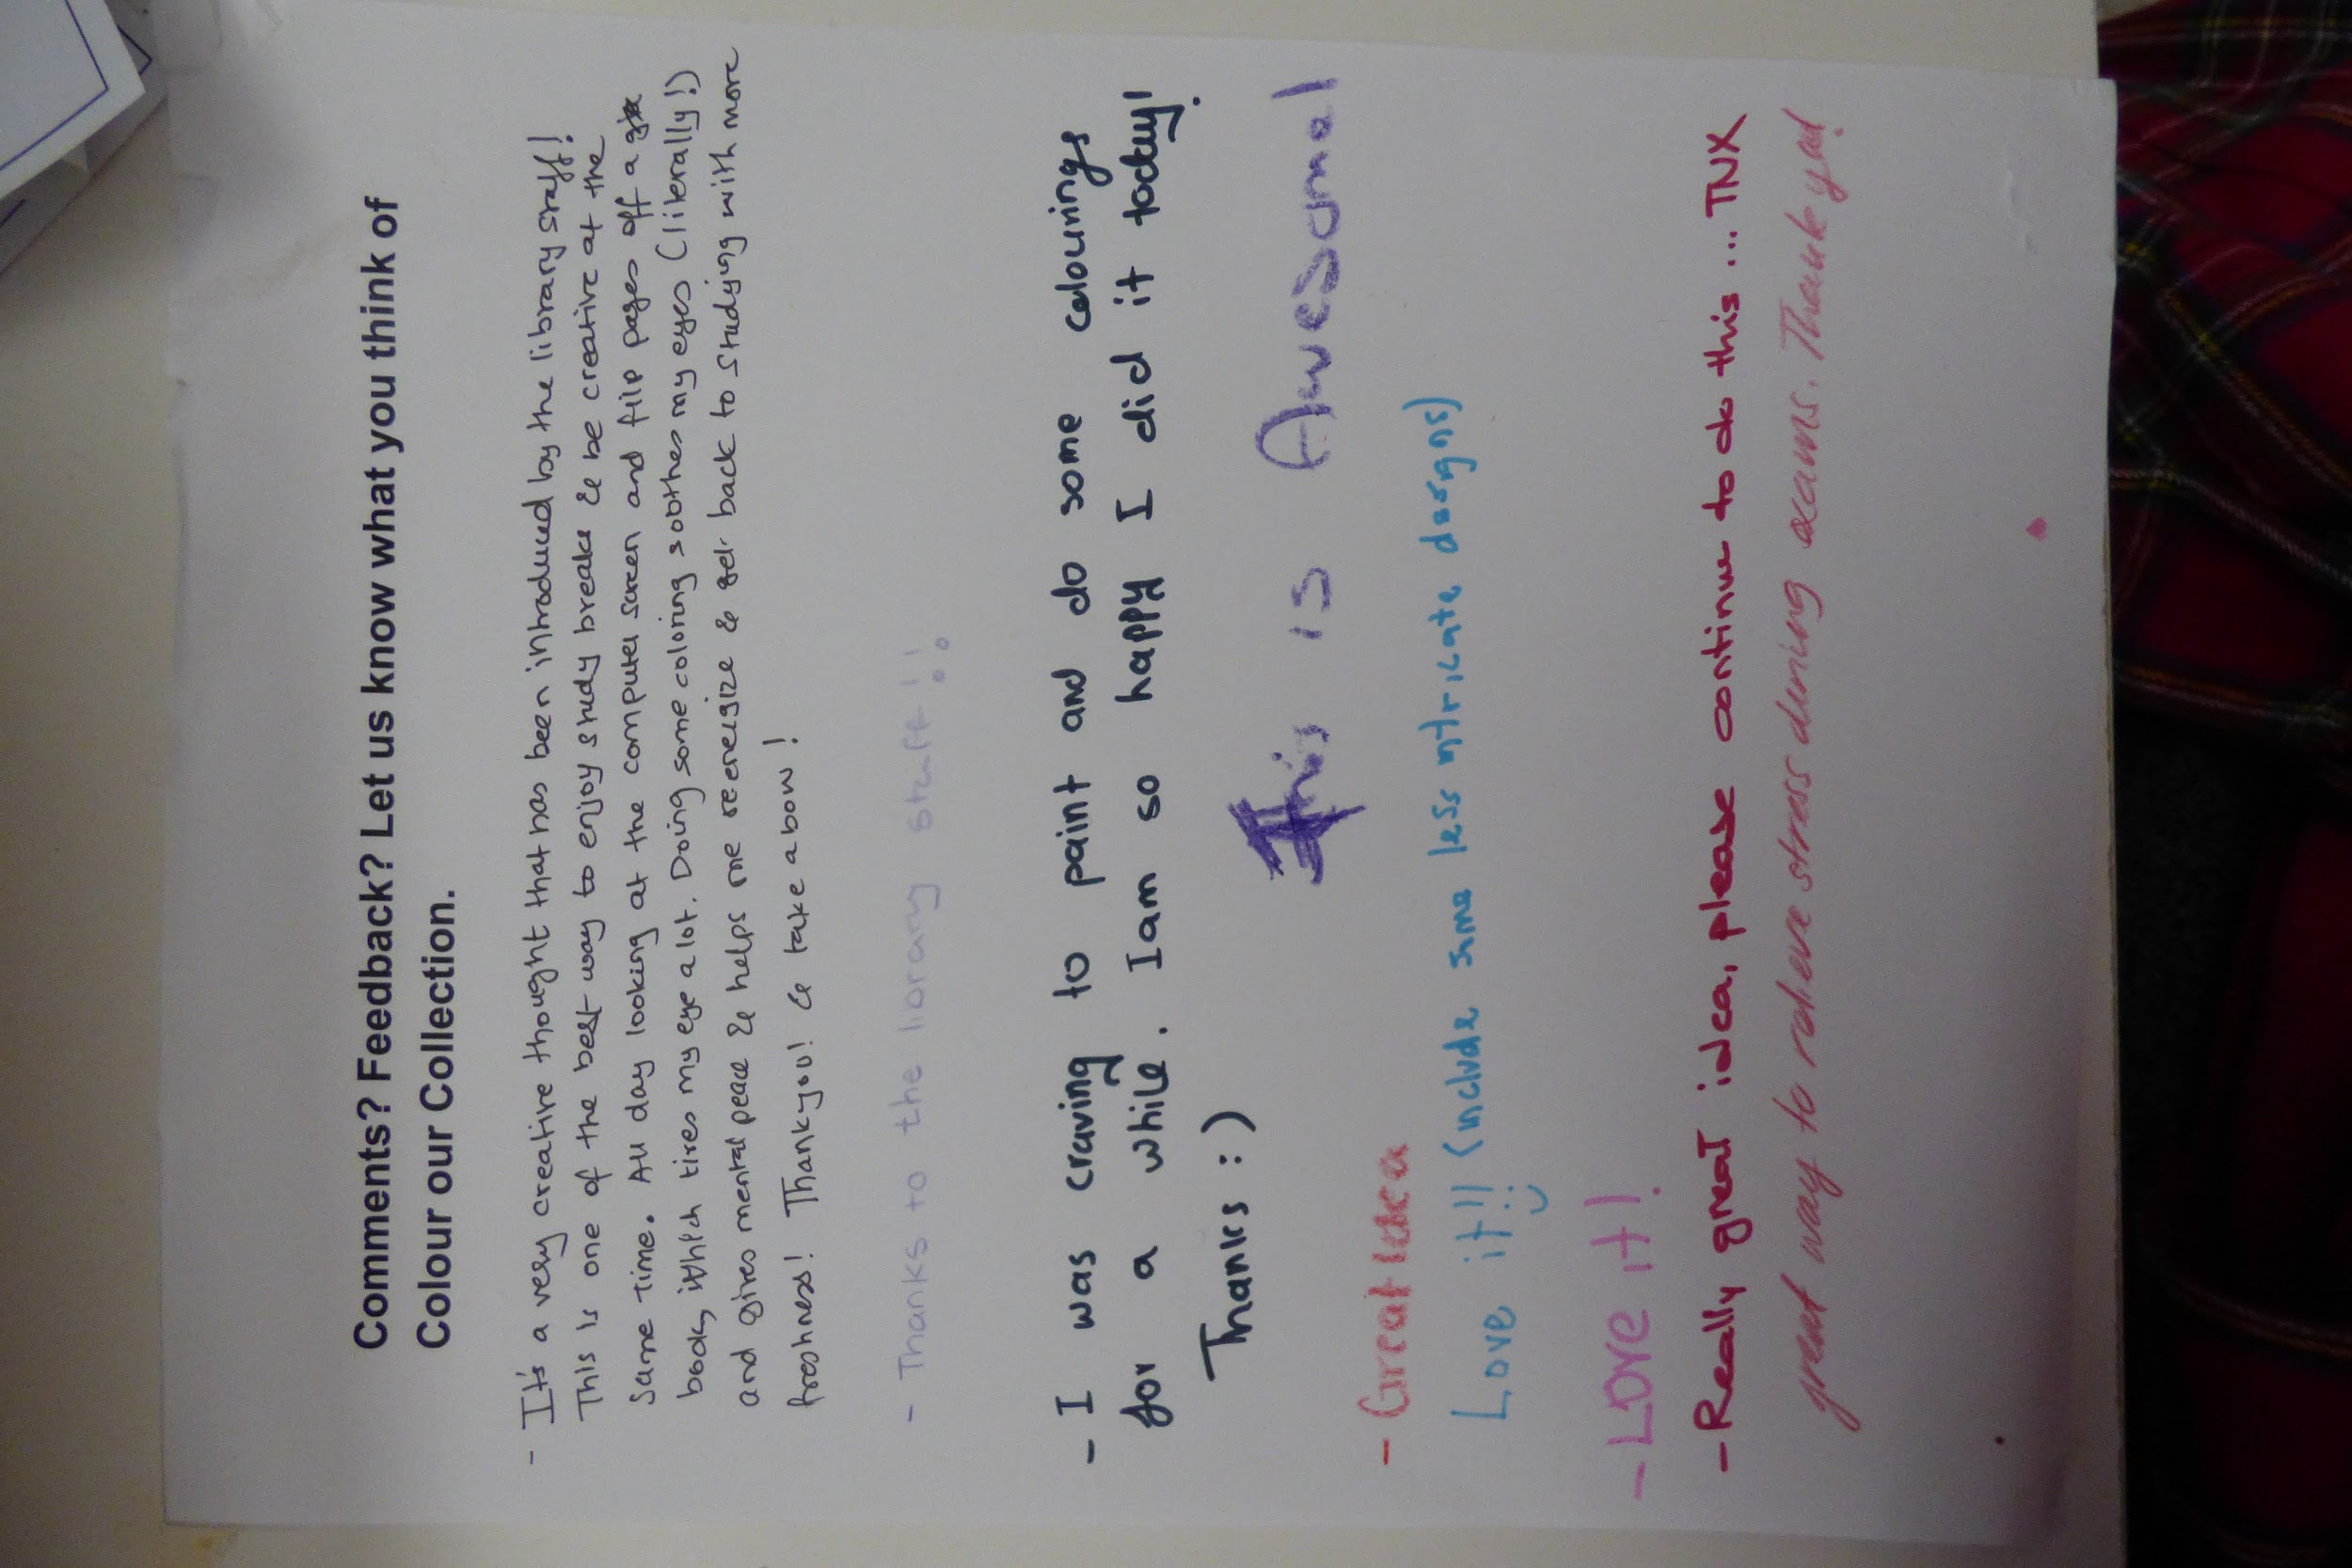 Comments? Feedback? Let us know what you think of
Colour our Collection.
- It's a very creative thought that has been introduced by the library staff!
This is one of the best way to enjoy study break & be creative at the
same time. All day looking at the computer screen and flip pages off a
book, which tires my eye a lot. Doing some coloring sothes my eyes (literally!)
and gives mental peace & helps me reenergize & get back to studying with more
freshness! Thankyou! & take a bow!
- Thanks to the library staff!!
- I was craving to paint and do some colourings
for a while. I am so happy I did it today!
Thanks :)
This is Awesome!
- Great Idea
Love it!! (include some less intricate designs)
- LOVE it!
- Really great idea, please continue to do this ... TNX
great way to relieve stress during exams. Thank you!